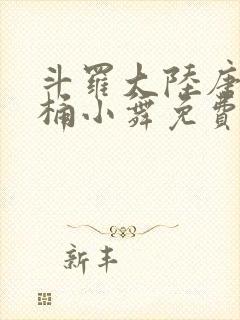 斗羅大陸唐
桶小舞免費
新丰